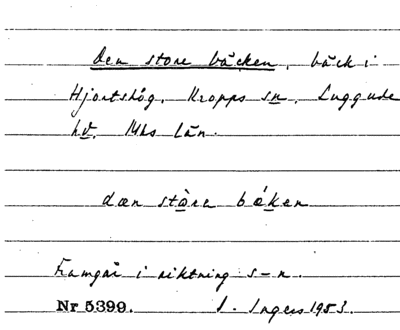 Den store bäcken, bäck i
Hjortshög, Kropps sn, Luggude
hd, Mhs län.
dæn stòra bǽken
Framgår i riktning s–n.
Nr 5399. I. Ingers 1953.